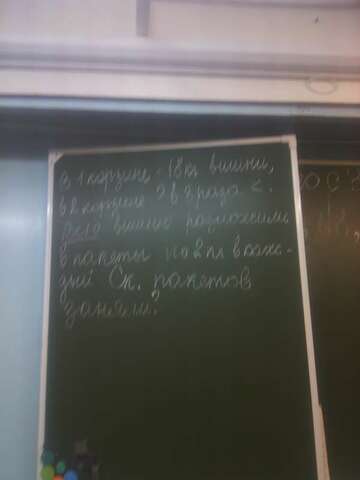 В 1 корзине - 18 кг вишни,
в 2 корзине в 2 раза <.
Всю вишню разложили
в пакеты по 2 кг в каж-
дый Ск. пакетов
заняли?